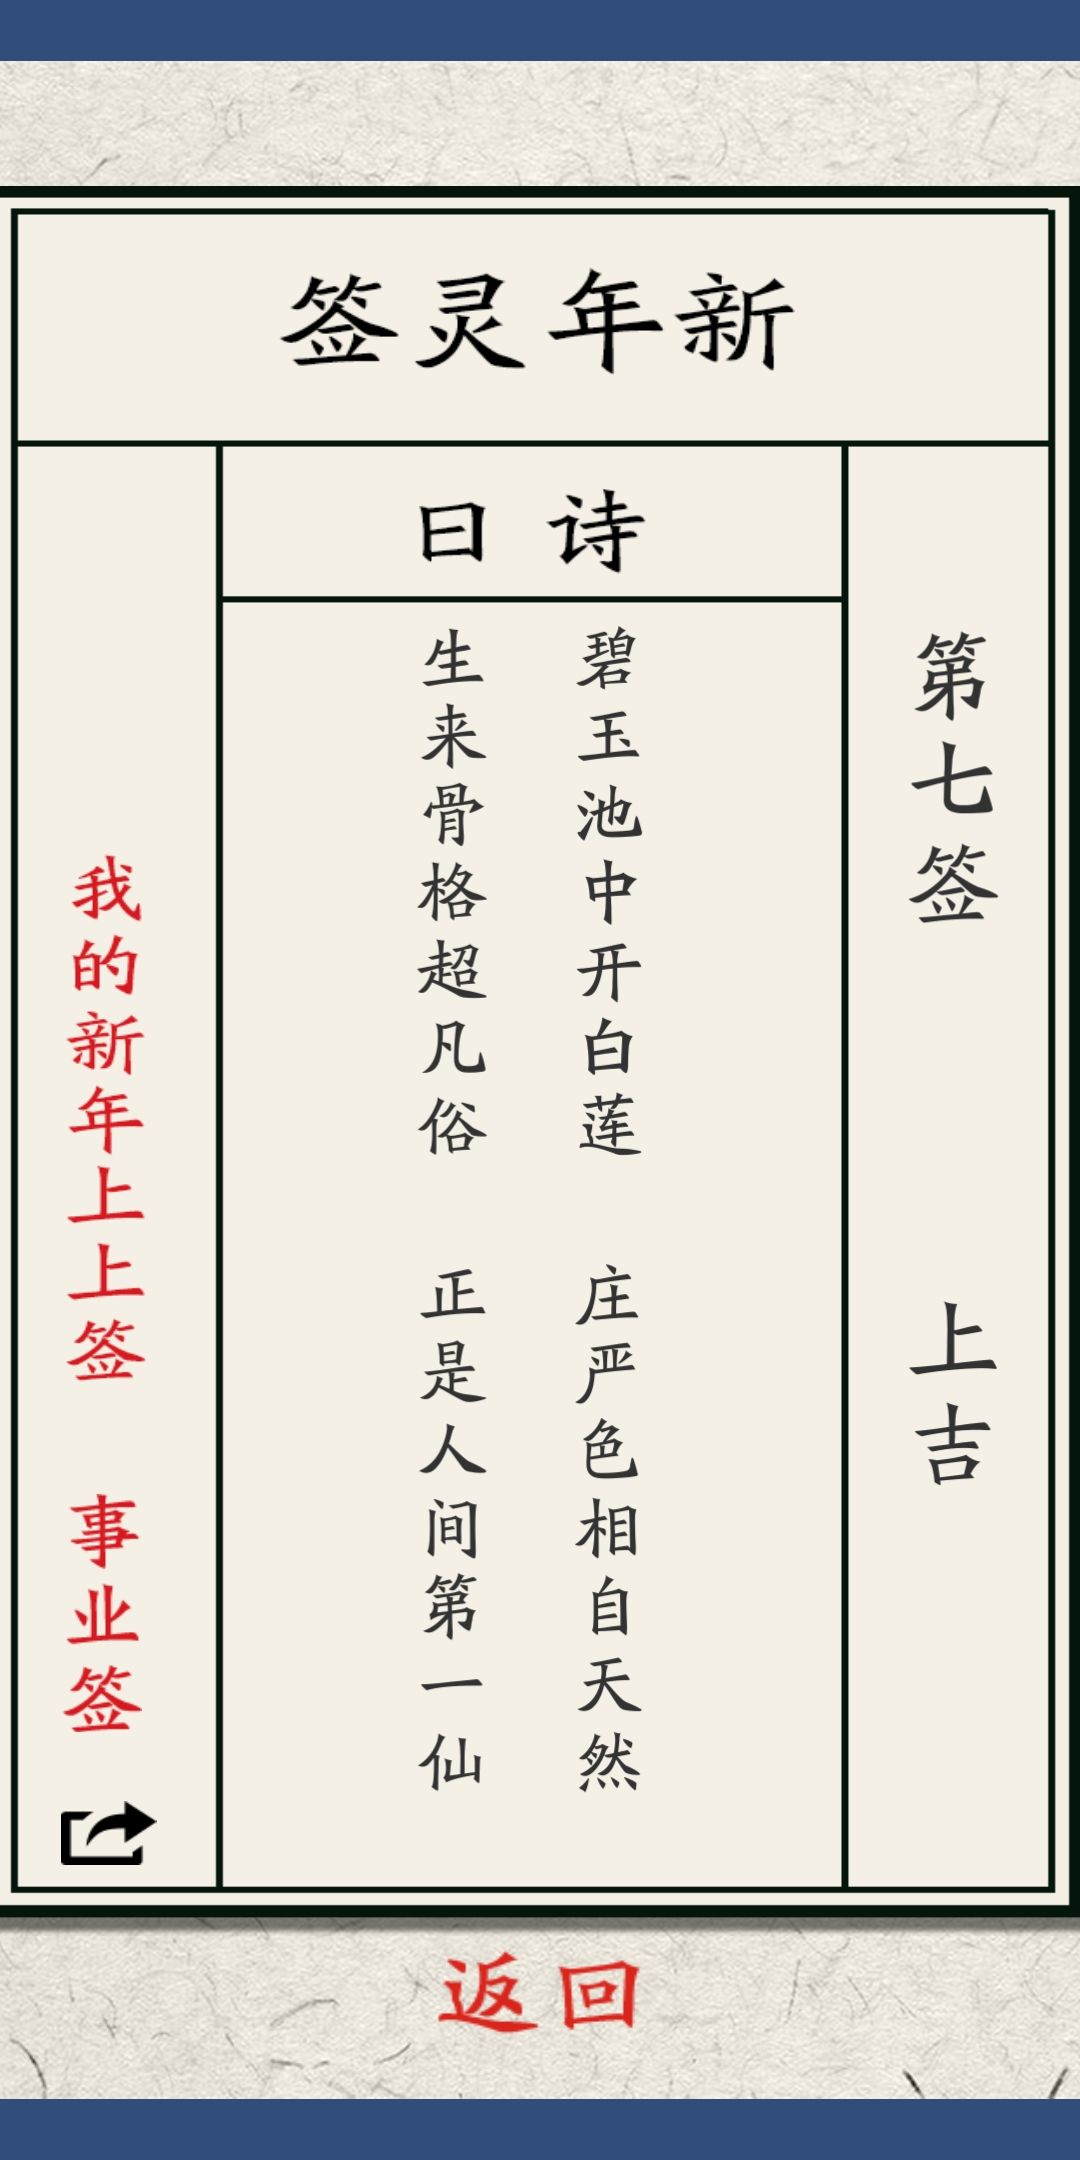 新年灵签
第七签 上吉
诗曰
碧玉池中开白莲 庄严色相自天然
生来骨格超凡俗 正是人间第一仙
我的新年上上签 事业签
返回